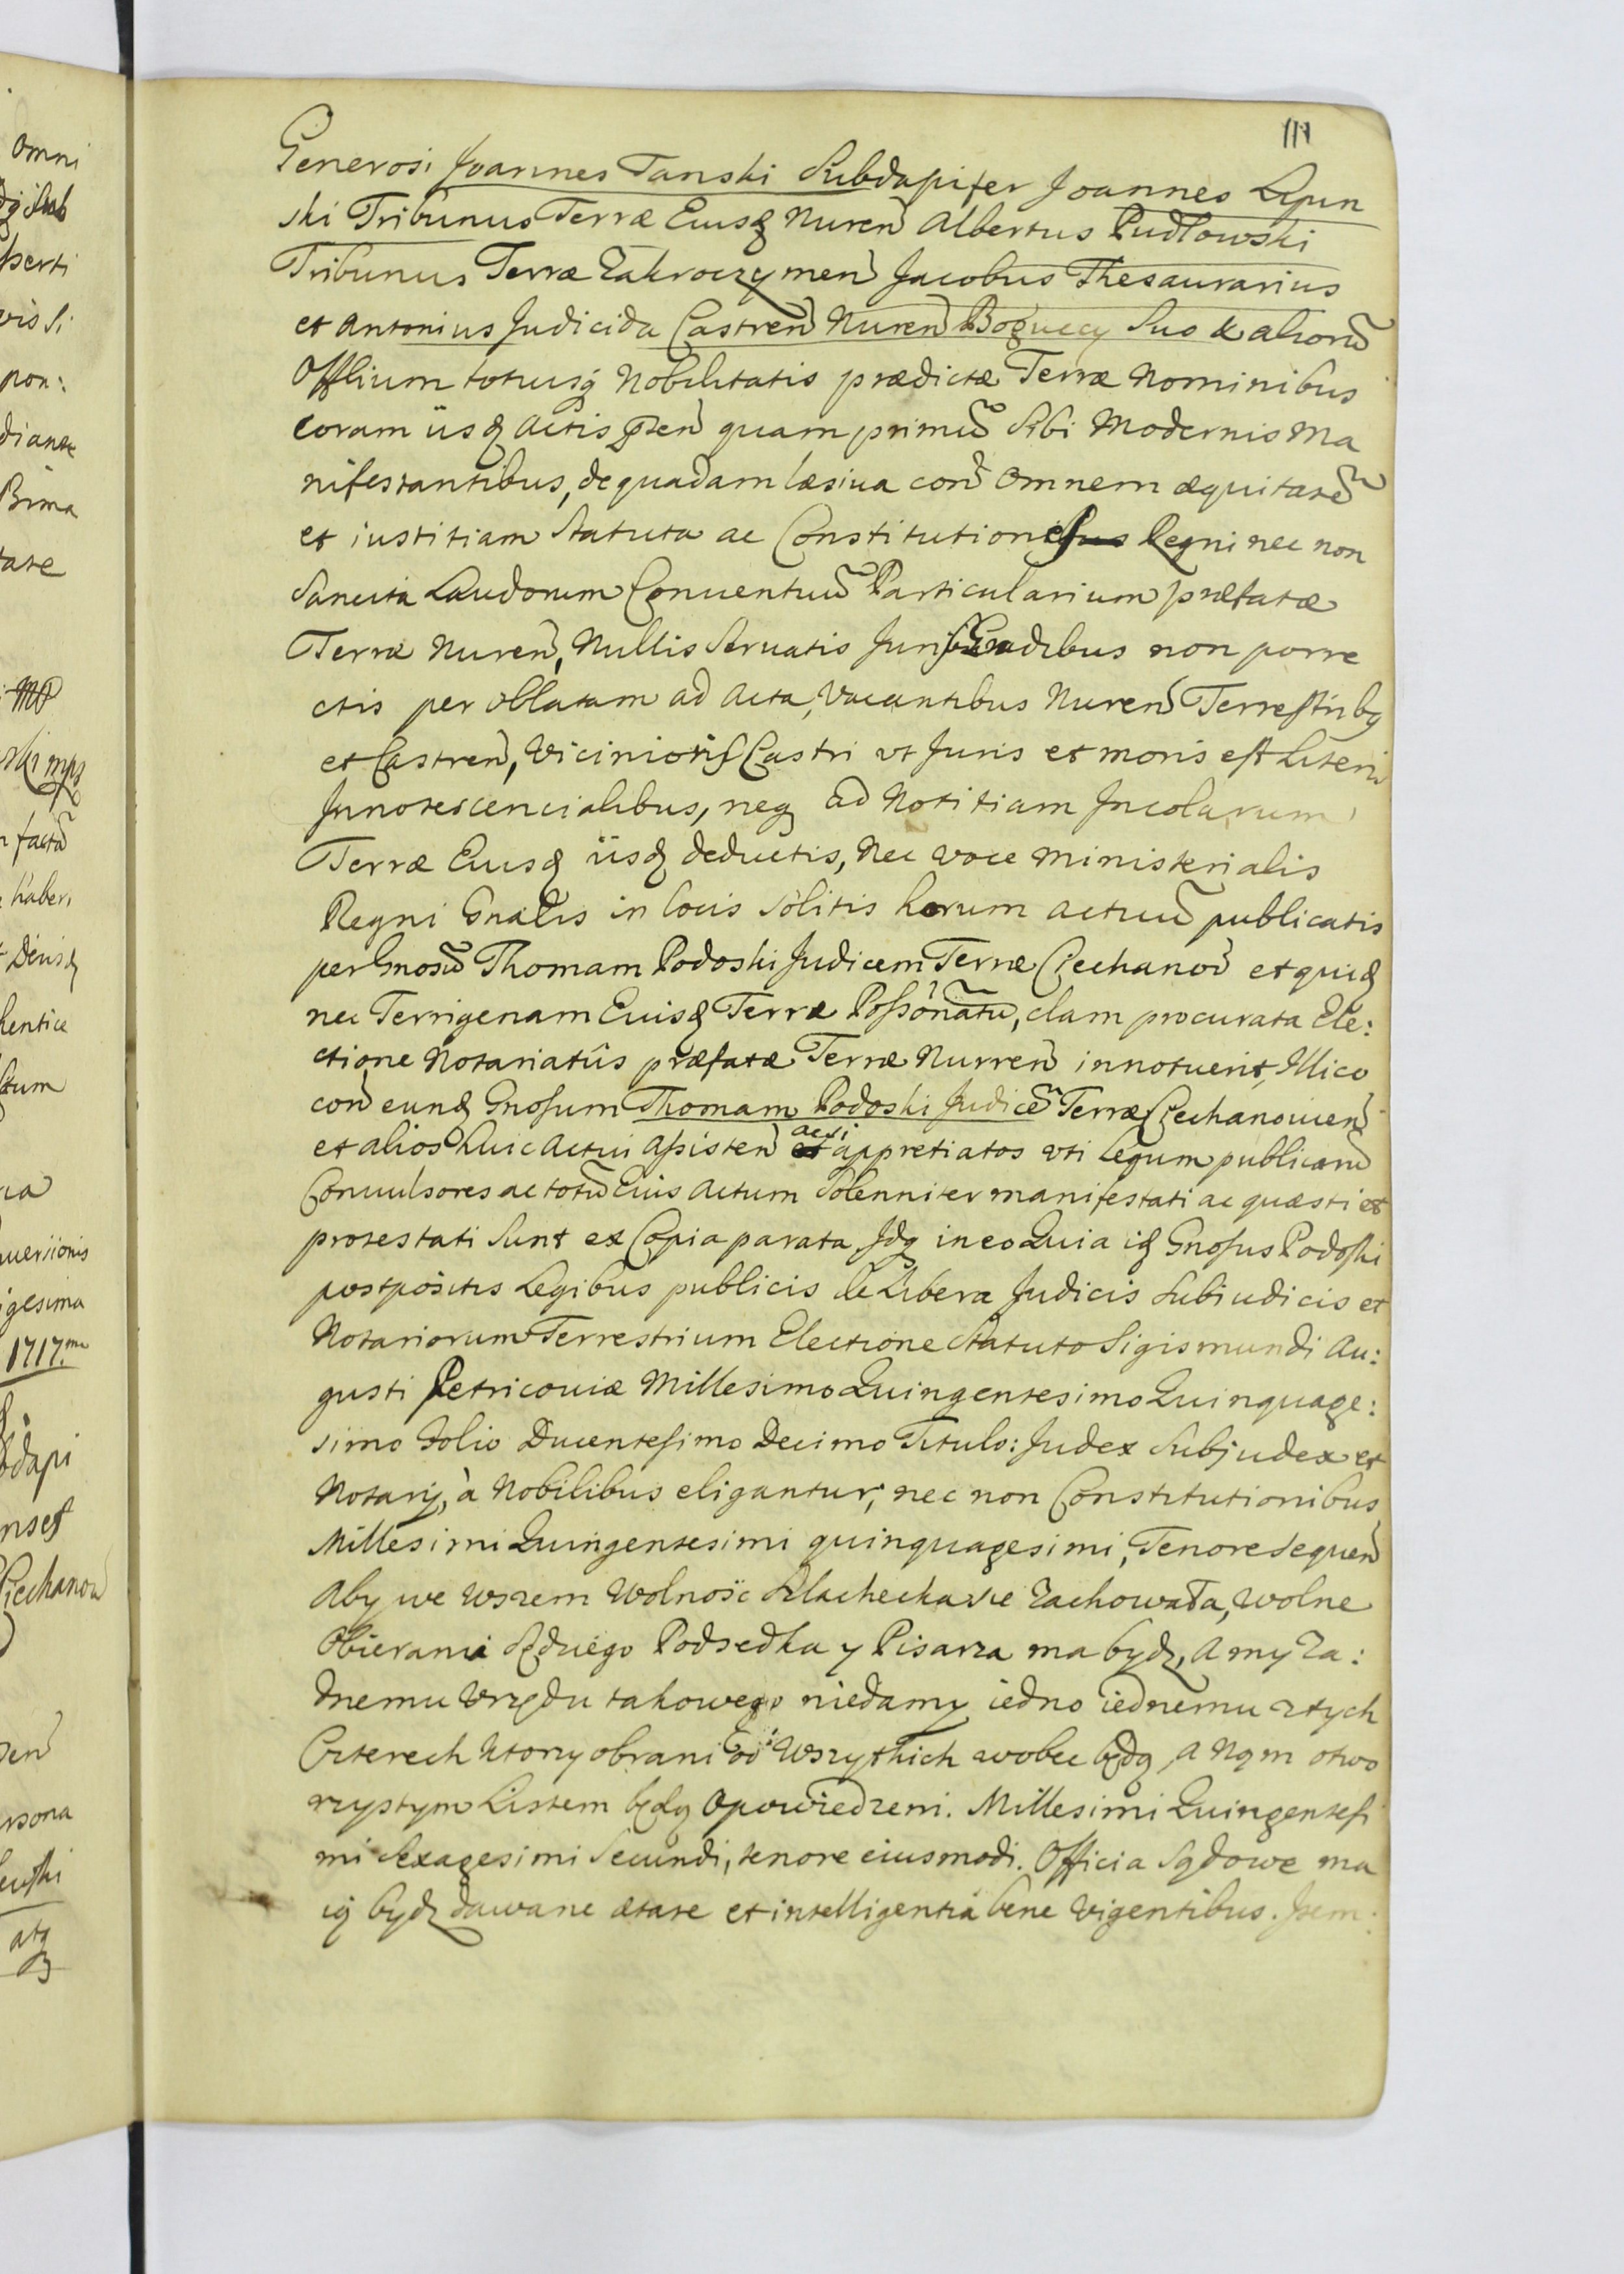 111
Generosi Joannes Tanski Subdapifer Joannes Lipin
ski Tribunus Terræ Eiusq Nuren Albertus Pudłowski
Tribunus Terræ Zakroczymen Jacobus Thesaurarius
et Antonius Judicida Castren Nuren Boguccy Suo & aliorū
Offlium totiusq Nobilitatis prædictæ Terræ Nominibus
coram iisq Actis pzen quam primū Sibi Modernis Ma
nifestantibus, de quadam læsiua con omnem æquitatē
et iustitiam Statuta ac Constitutiones Regni nec non
Sancita Laudorum Conuentuū Particularium præfatæ
Terræ Nuren, Nullis Seruatis Juris Gradibus non porre
ctis per oblatam ad Acta, Vacantibus Nuren Terrestribq
et Castren, Vicinioris Castri vt Juris et moris est Literis
Innotescencialibus, neq ad Notitiam Incolarum
Terræ Eiusq iisq deductis, Nec voce Ministerialis
Regni Gnalis in locis solitis horum actuū publicatis
per Gnosū Thomam Podoski Judicem Terræ Ciechanou et quidq
nec Terrigenam Euisq Terræ Possonatū, clam procurata Ele:
ctione Notariatûs præfatæ Terræ Nurren innotuerit, Illico
con eunq Gnosum Thomam Podoski Judicē Terræ Ciechanouien
et alios huic Actui Assisten acsi appretiatos vti Legum publicarū
Conuulsores ac totū Eius Actum Solenniter manifestati ac quæsti et
protestati Sunt ex Copia parata Idq in eo Quia iq Gnosus Podoski
postpositis Legibus publicis de Libera Judicis Subiudicis et
Notariorum Terrestrium Electione Statuto Sigismundi Au:
gusti Petricouiæ Millesimo Quingentesimo Quinquage:
simo Folio Ducentesimo Decimo Titulo: Judex Subjudex et
Notarij, à Nobilibus eligantur, nec non Constitutionibus
Millesimi Quingentesimi quinquagesimi, Tenore sequen
Aby we wszem Wolność Szlachecka sie zachowała, wolne
Obierania Sędziego Podsedka y Pisarza ma bydz, A my Za:
dnemu Vrzędu takowego niedamy iedno iednemu z tych
Czterech ktorzy obrani od Wszytkich wobec będą A Nąm otwo
rzystym Listem będą opowiedzeni. Millesimi Quingentesi
mi Sexagesimi Secundi, tenore eiusmodi. Officia Sądowe ma
ią bydz dawane ætate et intelligentiâ bene Vigentibus. Item: